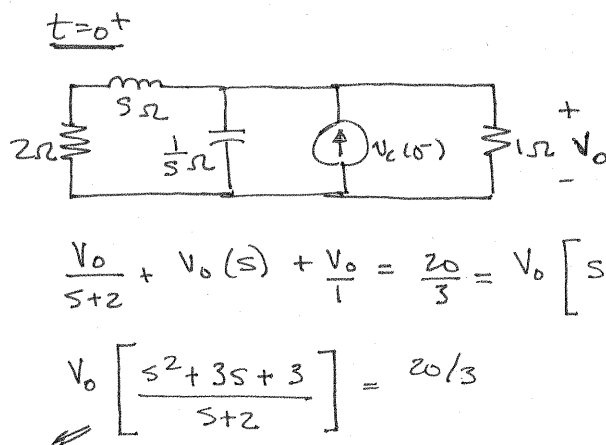 t=0⁺
SΩ
2Ω
1/S Ω
Vc(0⁻)
1Ω
+
Vo
-
Vo/(S+2) + Vo(S) + Vo/1 = 20/3 = Vo [ S
Vo [ (S²+3S+3)/(S+2) ] = 20/3